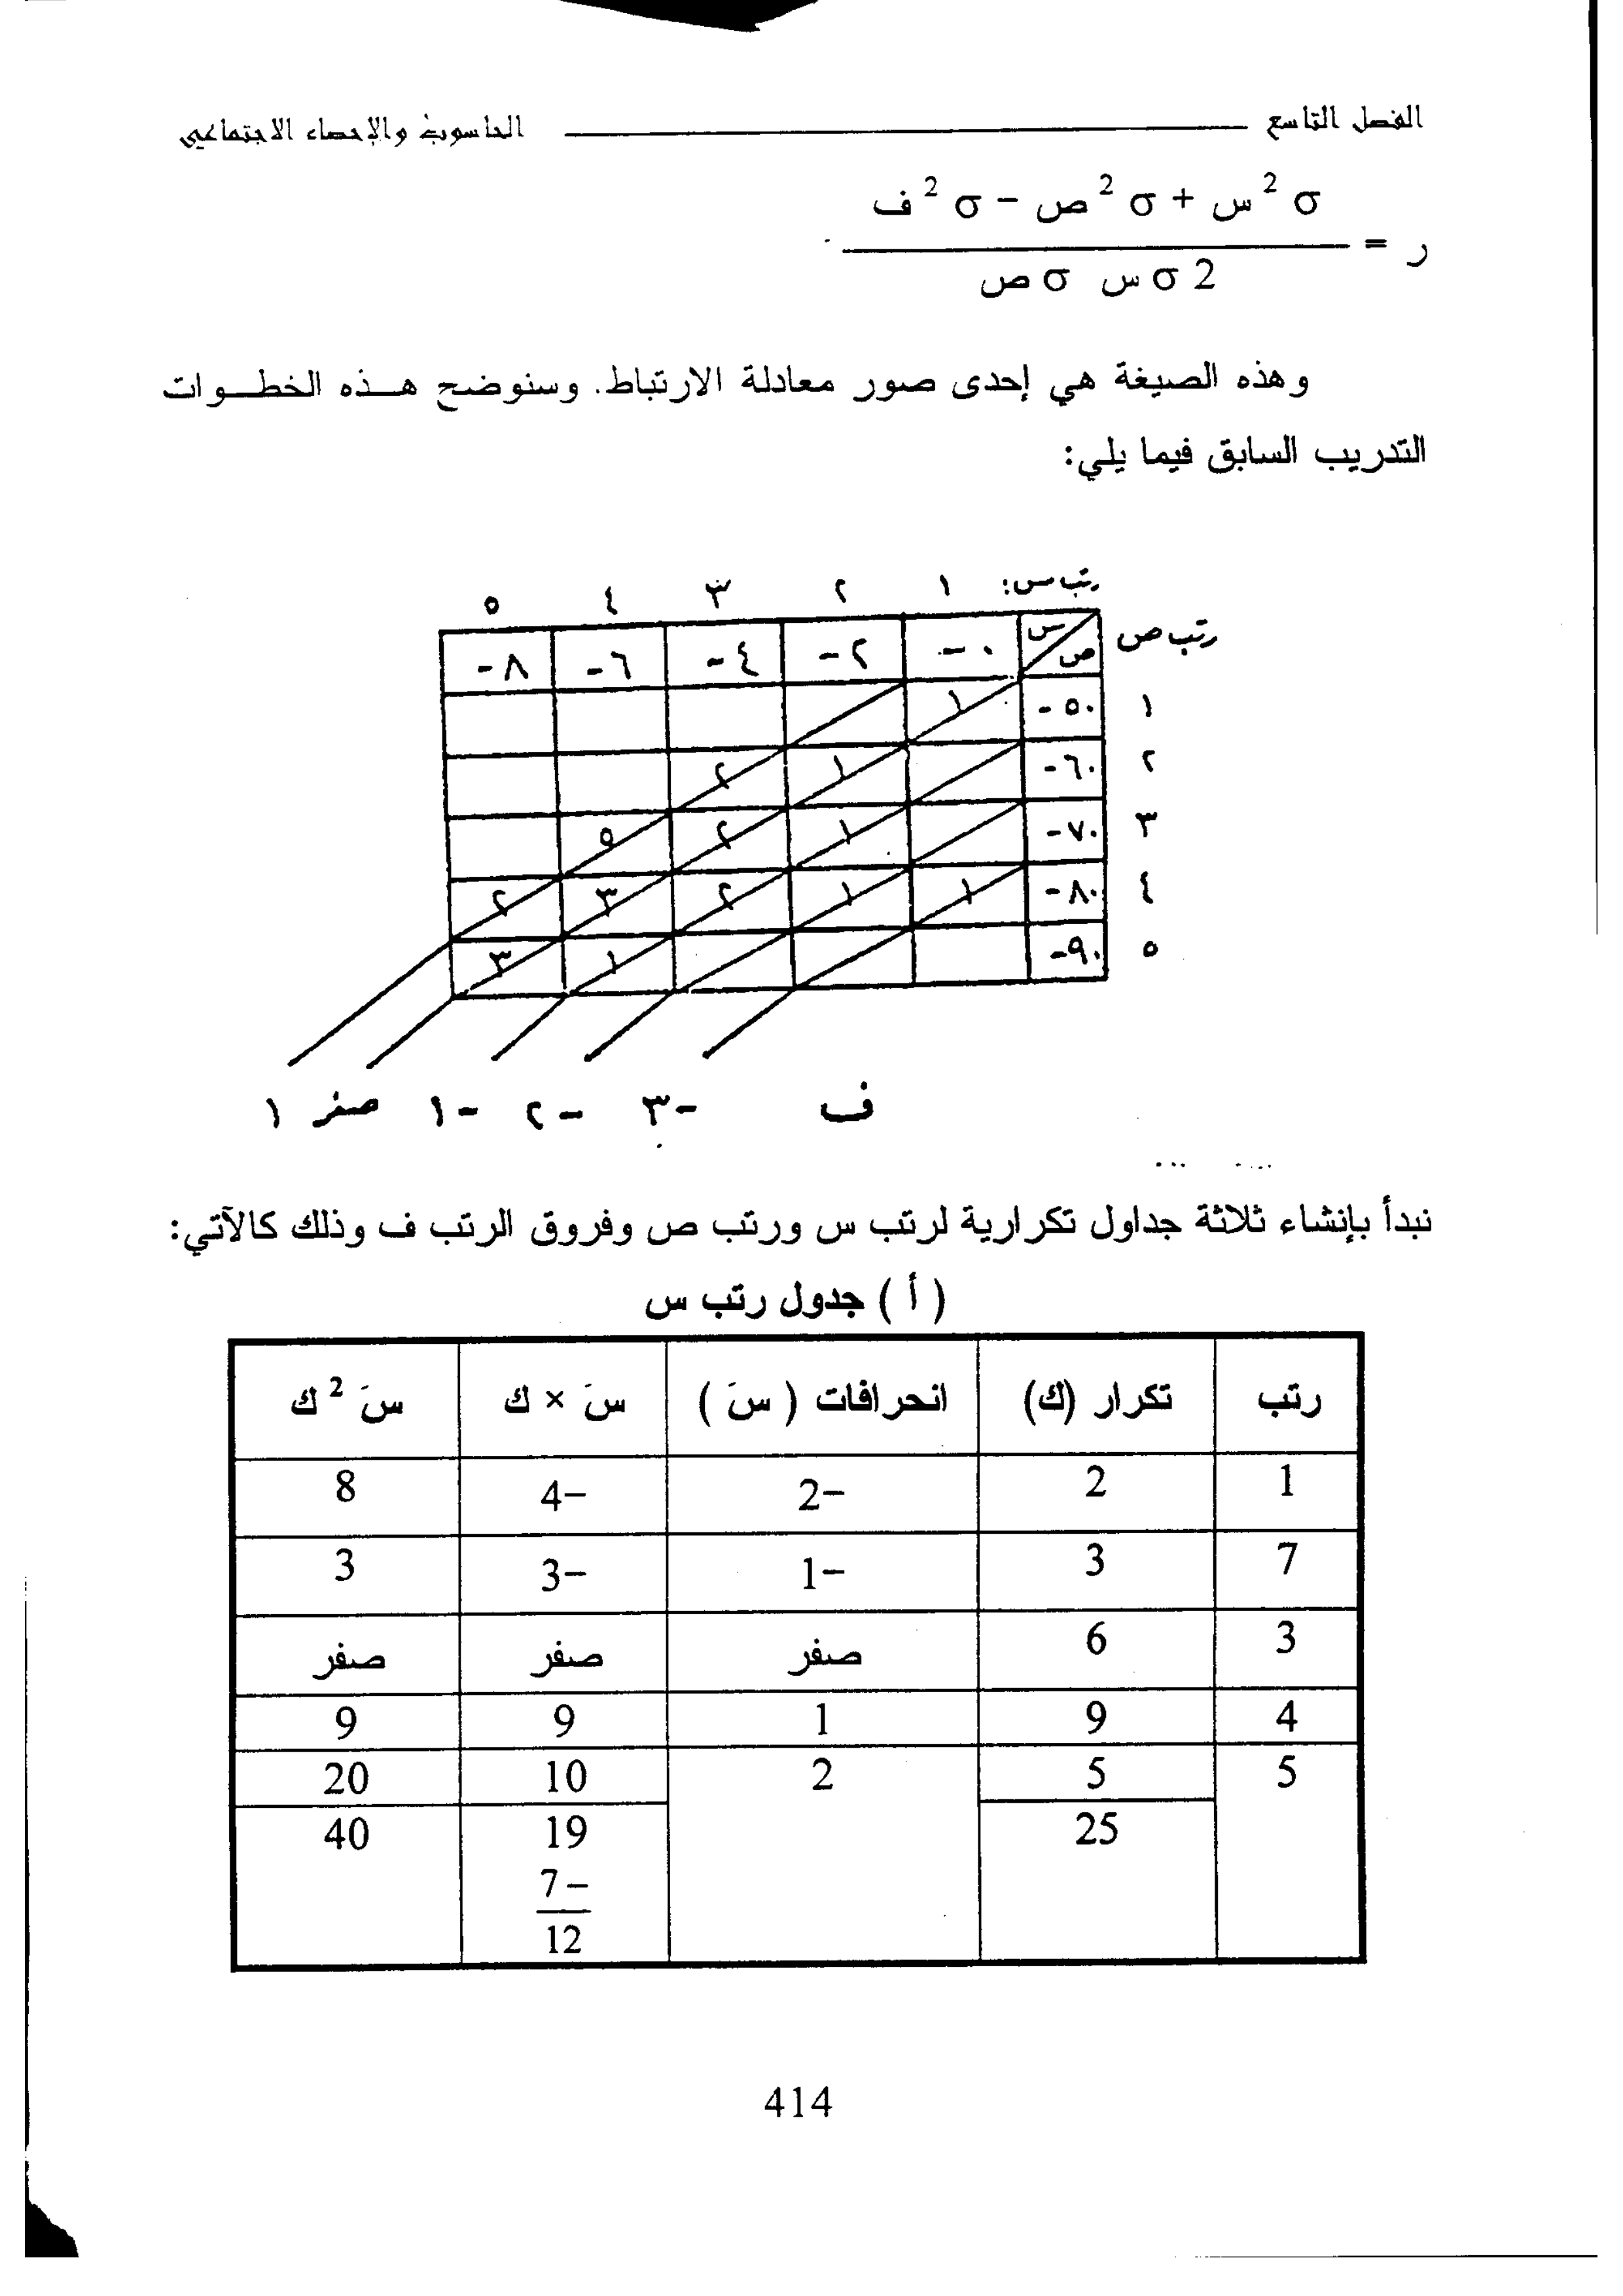 الفصل التاسع الحاسوب والإحصاء الاجتماعي
σ 2 س + σ 2 ص − σ 2 ف
ر =
2 σ س σ ص
وهذه الصيغة هي إحدى صور معادلة الارتباط. وسنوضح هذه الخطوات
التدريب السابق فيما يلي:
رتب س: ١ ٢ ٣ ٤ ٥
رتب ص س ص ٠- ٢- ٤- ٦- ٨-
١ ٥٠- ١
٢ ٦٠- ١ ٢
٣ ٧٠- ١ ٢ ٥
٤ ٨٠- ١ ١ ٢ ٣ ٢
٥ ٩٠- ١ ٣
ف -٣ -٢ -١ صفر ١
نبدأ بإنشاء ثلاثة جداول تكرارية لرتب س ورتب ص وفروق الرتب ف وذلك كالآتي:
( أ ) جدول رتب س
رتب تكرار (ك) انحرافات ( سَ ) سَ × ك سَ 2 ك
1 2 −2 −4 8
7 3 −1 −3 3
3 6 صفر صفر صفر
4 9 1 9 9
5 5 2 10 20
25 19 40
−7
12
414